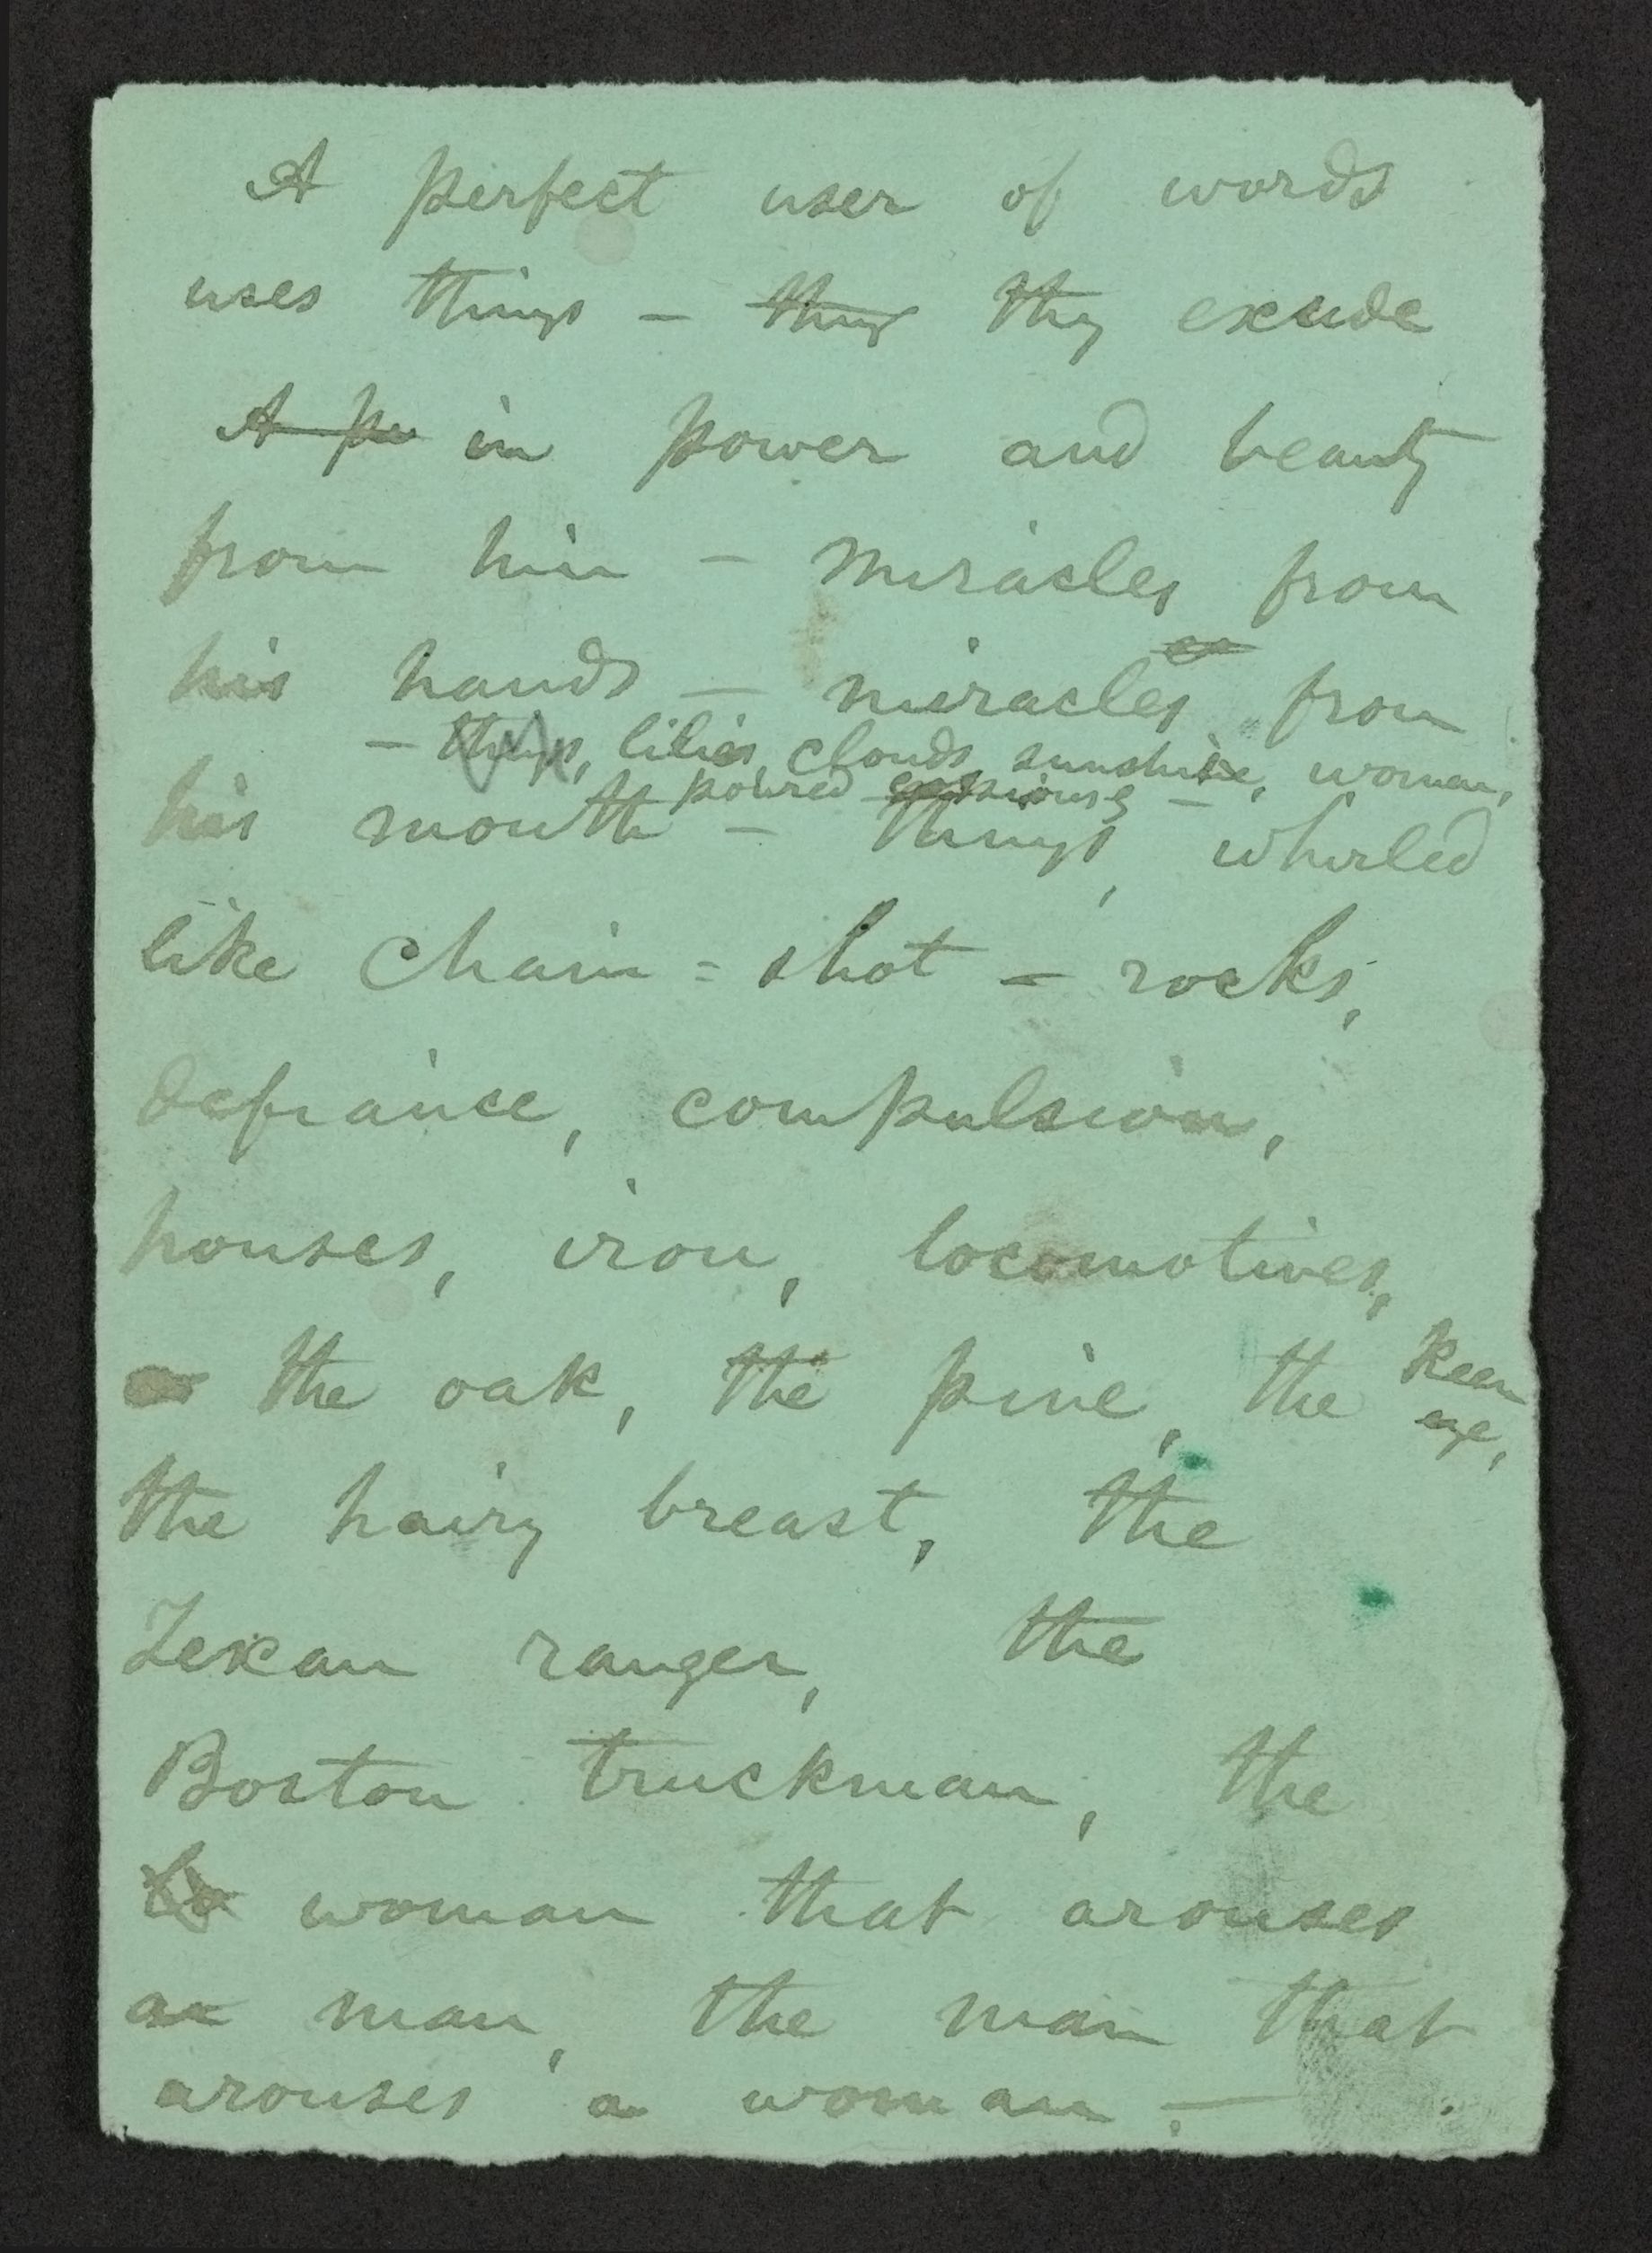 A perfect user of words
uses things — they exude
A pe in power and beauty
from him — miracles from
his hands — miracles from
— things, lilies, clouds, sunshine, woman,
poured copiously —
his mouth — things, whirled
like chain-shot — rocks,
defiance, compulsion,
houses, iron, locomotives,
the oak, the pine, the keen
eye,
the hairy breast, the
Texan ranger, the
Boston truckman, the
woman that arouses
a man, the man that
arouses a woman. —